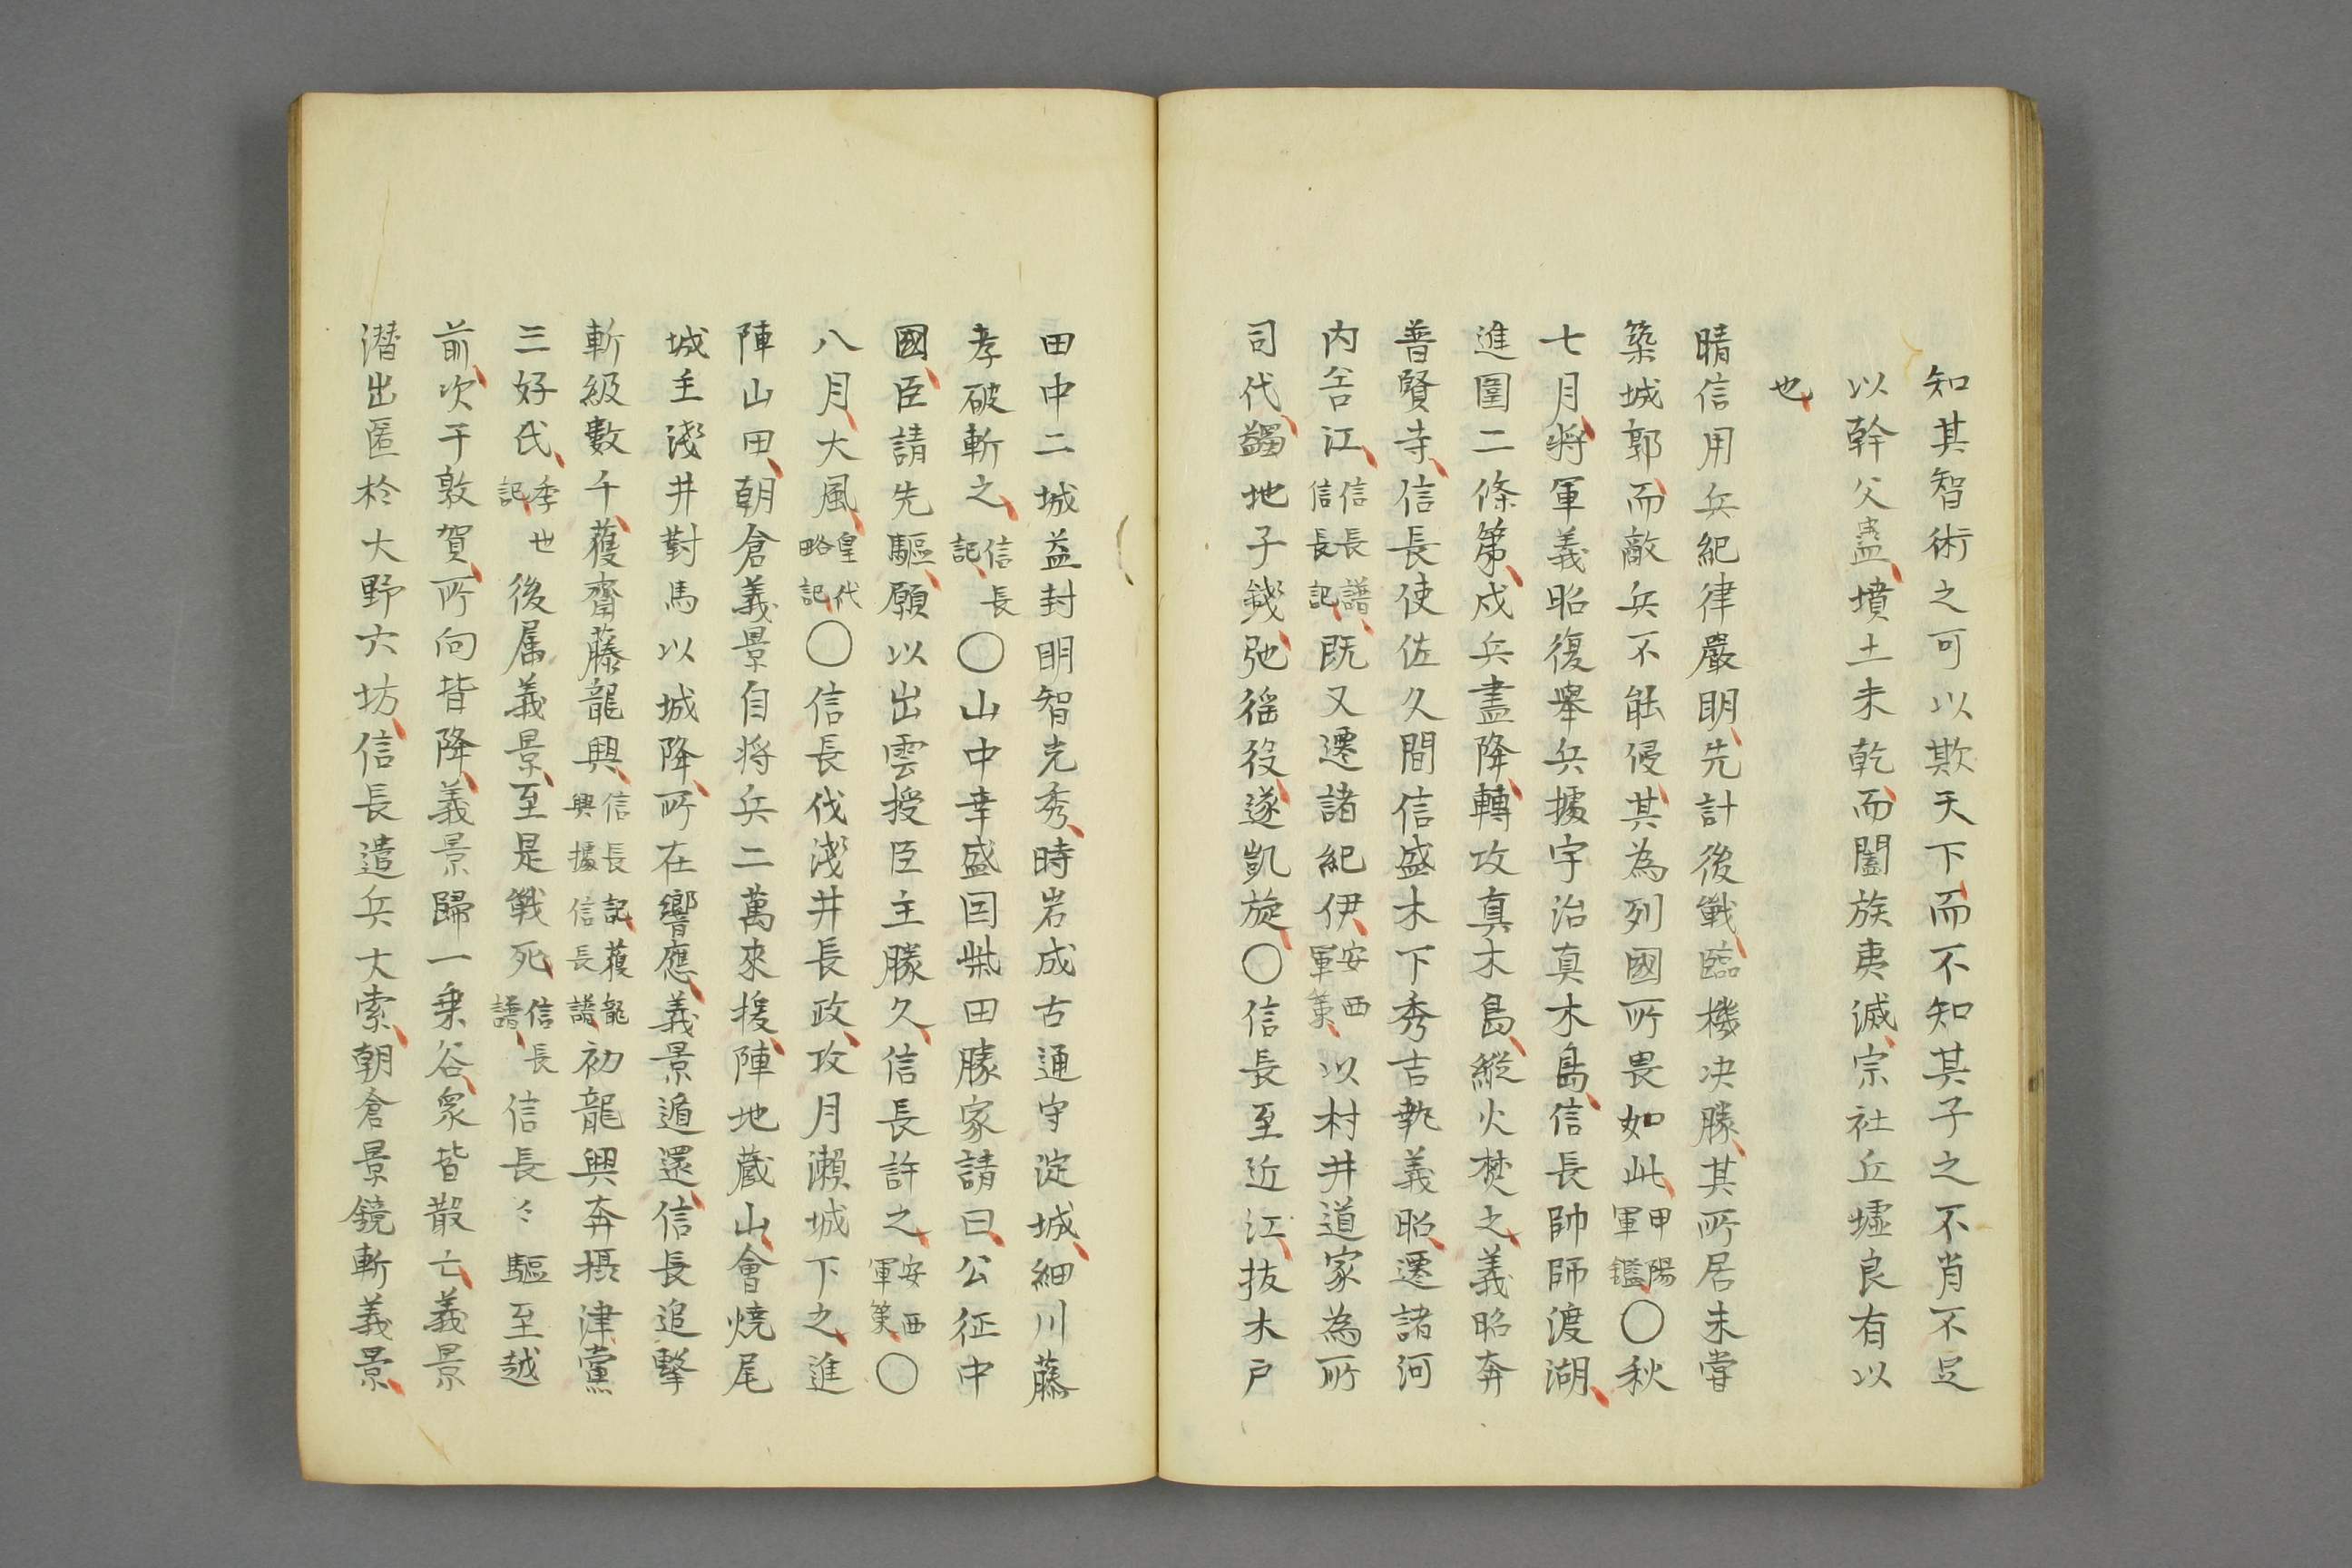 知其智術之可以欺天下而不知其子之不肖不足
以幹父蠱墳土未乾而闔族夷滅宗社丘墟良有以
也
晴信用兵紀律嚴明先計後戰臨機决勝其所居未嘗
築城郭而敵兵不能侵其為列國所畏如此甲陽軍鑑〇秋
七月將軍義昭復舉兵據宇治真木島信長帥師渡湖
進圍二條第戍兵盡降轉攻真木島縱火焚之義昭奔
普賢寺信長使佐久間信盛木下秀吉執義昭遷諸河
内若江信長譜信長記既又遷諸紀伊安西軍策以村井道家為所
司代蠲地子錢弛徭役遂凱旋〇信長至近江拔木戶
田中二城益封明智光秀時岩成古通守淀城細川藤
孝破斬之信長記〇山中幸盛因柴田勝家請曰公征中
國臣請先驅願以出雲授臣主勝久信長許之安西軍策〇
八月大風皇代略記〇信長伐淺井長政攻月瀨城下之進
陣山田朝倉義景自將兵二萬來援陣地藏山會燒尾
城主淺井對馬以城降所在響應義景遁還信長追擊
斬級數千獲齋藤龍興信長記獲龍興據信長譜初龍興奔摂津黨
三好氏季世記後属義景至是戰死信長譜信長〻驅至越
前次于敦賀所向皆降義景歸一乗谷衆皆散亡義景
潛出匿於大野六坊信長遣兵大索朝倉景鏡斬義景